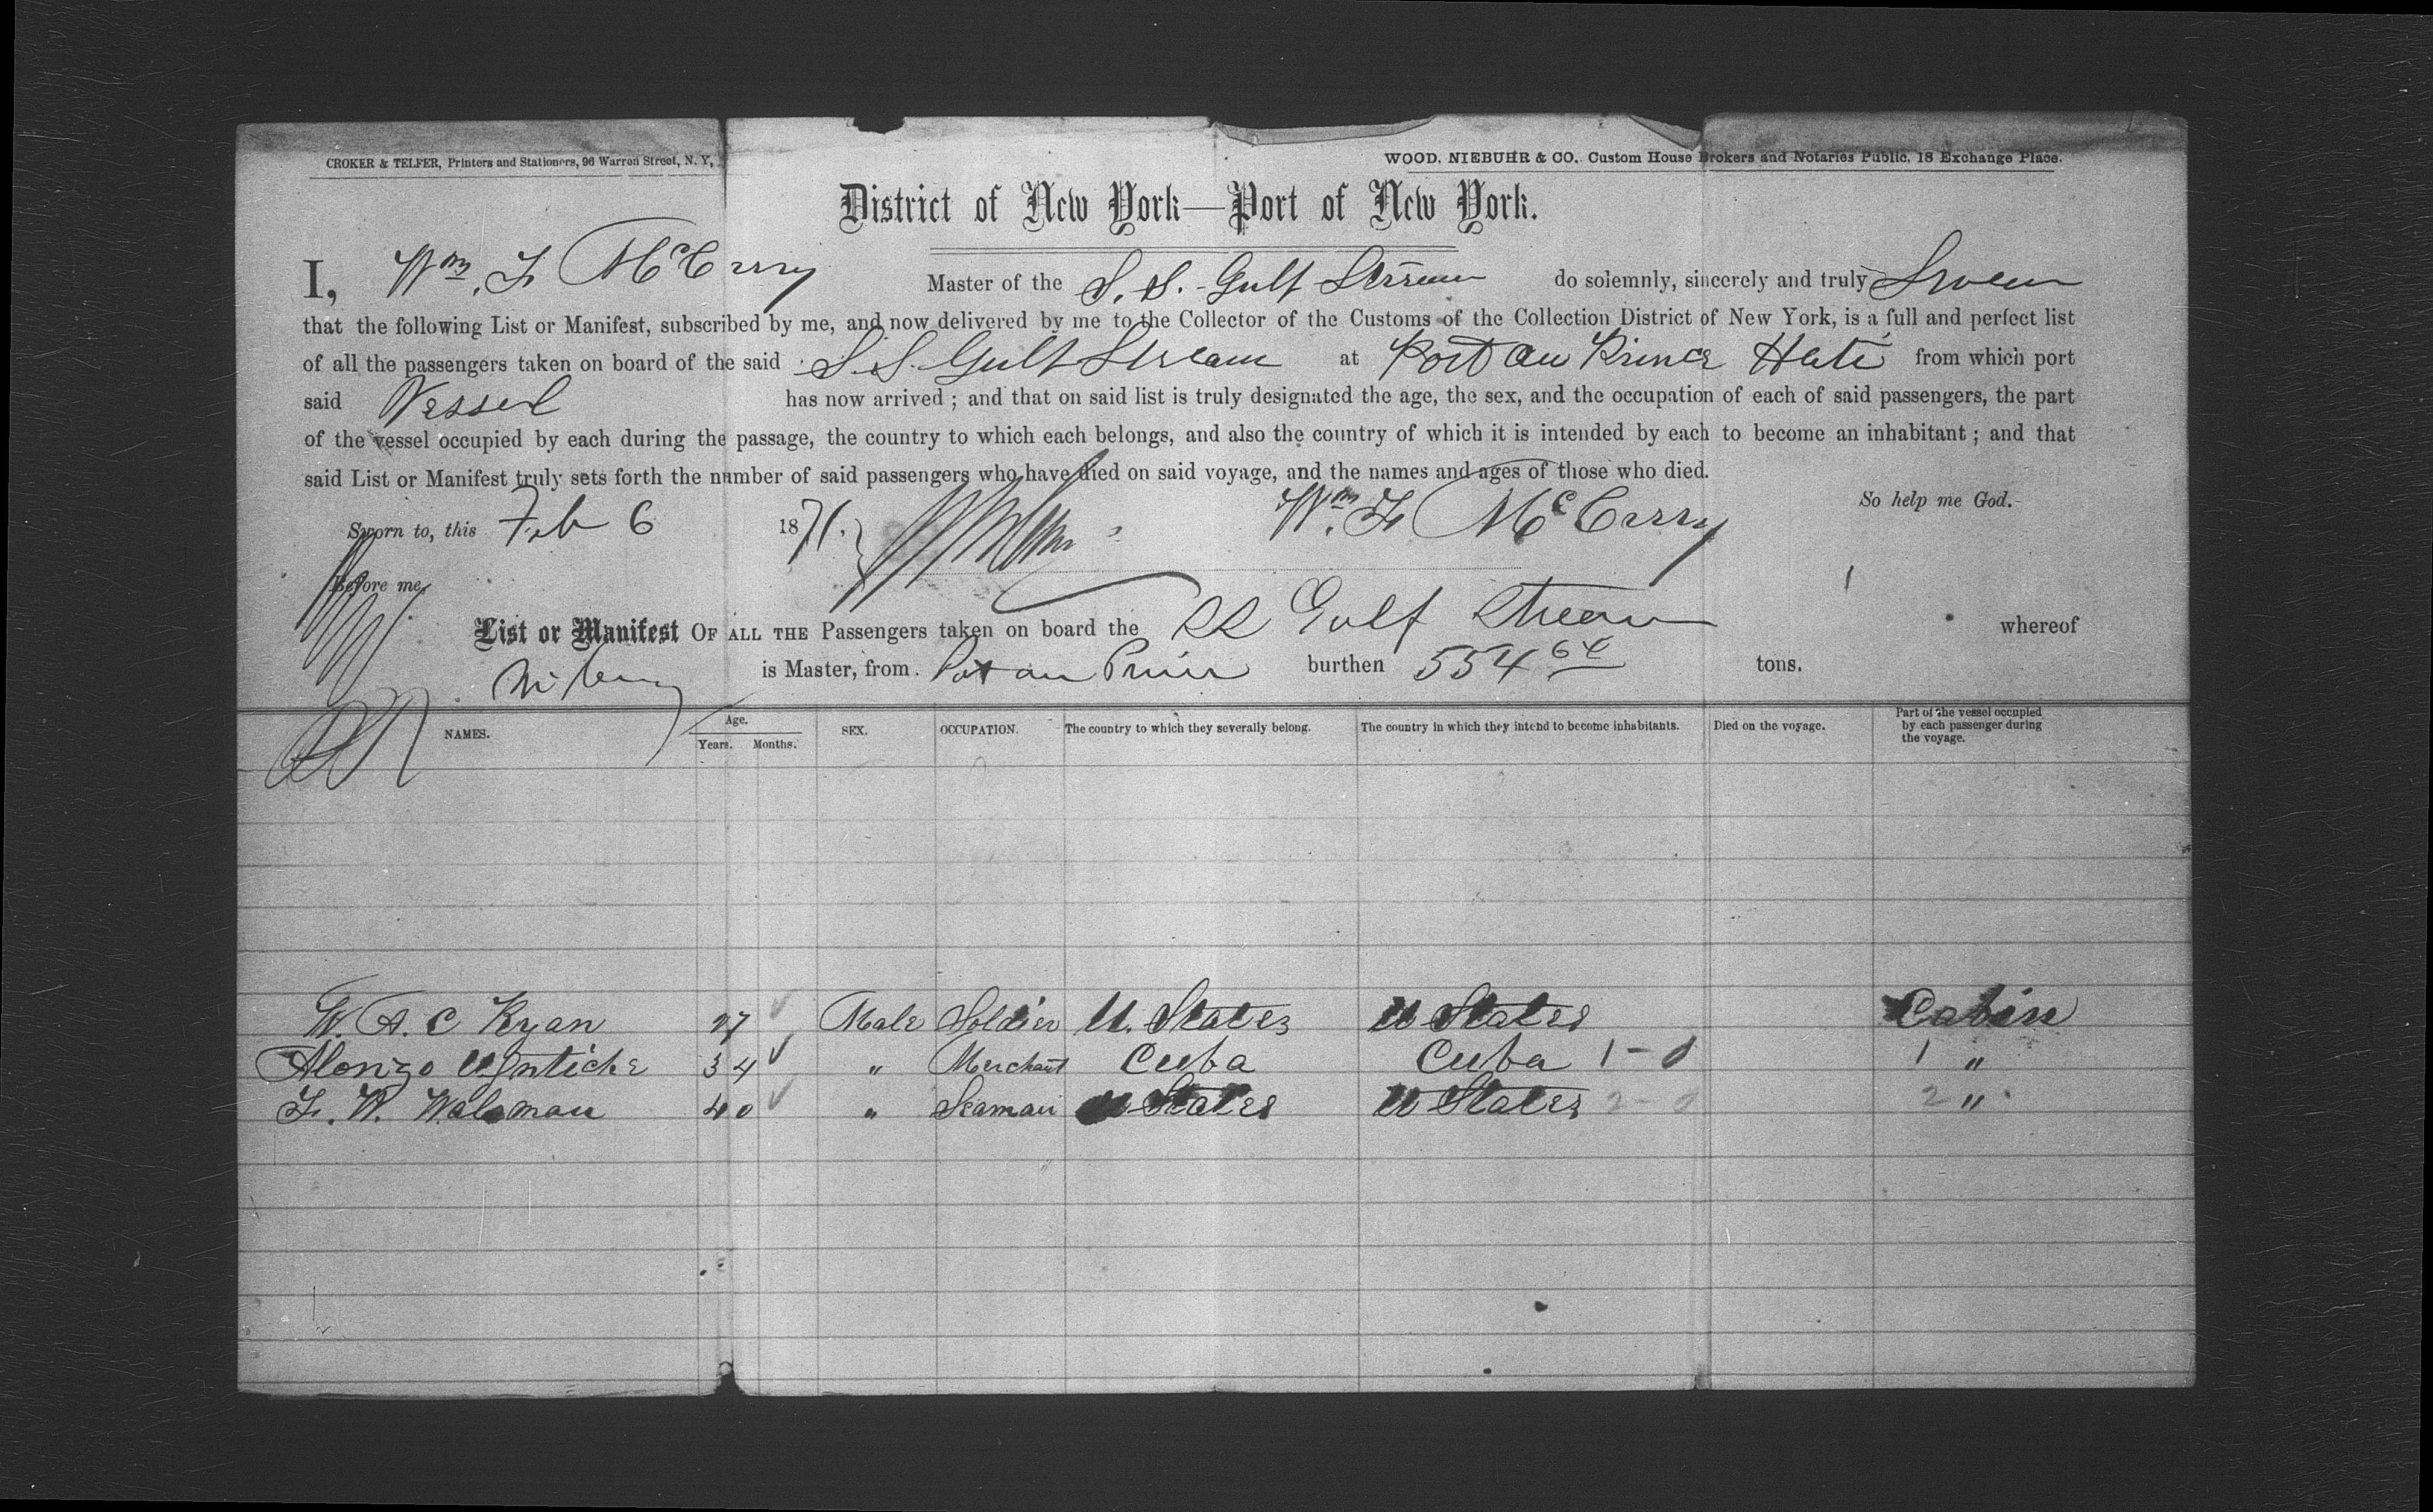 CROKER & TELFER, Printers and Stationers, 96 Warren Street, N. Y,
WOOD. NIEBUHR & CO. Custom House Brokers and Notaries Public. 18 Exchange Place.
District of New York—Port of New York.
I, Wm. F. McCrry Master of the S. S. Gulf Stream do solemnly, sincerely and truly Swear
that the following List or Manifest, subscribed by me, and now delivered by me to the Collector of the Customs of the Collection District of New York, is a full and perfect list
of all the passengers taken on board of the said S. S. Gulf Stream at Port au Prince Hati from which port
said Vessel has now arrived ; and that on said list is truly designated the age, the sex, and the occupation of each of said passengers, the part
of the vessel occupied by each during the passage, the country to which each belongs, and also the country of which it is intended by each to become an inhabitant ; and that
said List or Manifest truly sets forth the number of said passengers who have died on said voyage, and the names and ages of those who died.
So help me God.
Sworn to, this Feb 6 1871. Wm. F. McCrry
Before me,
List or Manifest OF ALL THE Passengers taken on board the SS Gulf Stream whereof
is Master, from Port au Prince burthen 554 64 tons.
NAMES. Age. Years. Months. SEX. OCCUPATION. The country to which they severally belong. The country in which they intend to become inhabitants. Died on the voyage. Part of the vessel occupied by each passenger during the voyage.
W. A. C Ryan 27 Male Soldier U. States U States Cabin
Alonzo 34 " Merchant Cuba Cuba 1 - 0 1 "
F. W. Walsman 40 " Seaman U States U States 2 - 0 2 "